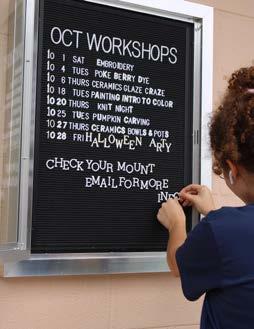 OCT WORKSHOPS
10 1 SAT EMBROIDERY
10 4 TUES POKE BERRY DYE
10 6 THURS CERAMICS GLAZE CRAZE
10 18 TUES PAINTING INTRO TO COLOR
10 20 THURS KNIT NIGHT
10 25 TUES PUMPKIN CARVING
10 27 THURS CERAMICS BOWLS & POTS
10 28 FRI HALLOWEEN ARTY
CHECK YOUR MOUNT
EMAIL FOR MORE
INFO